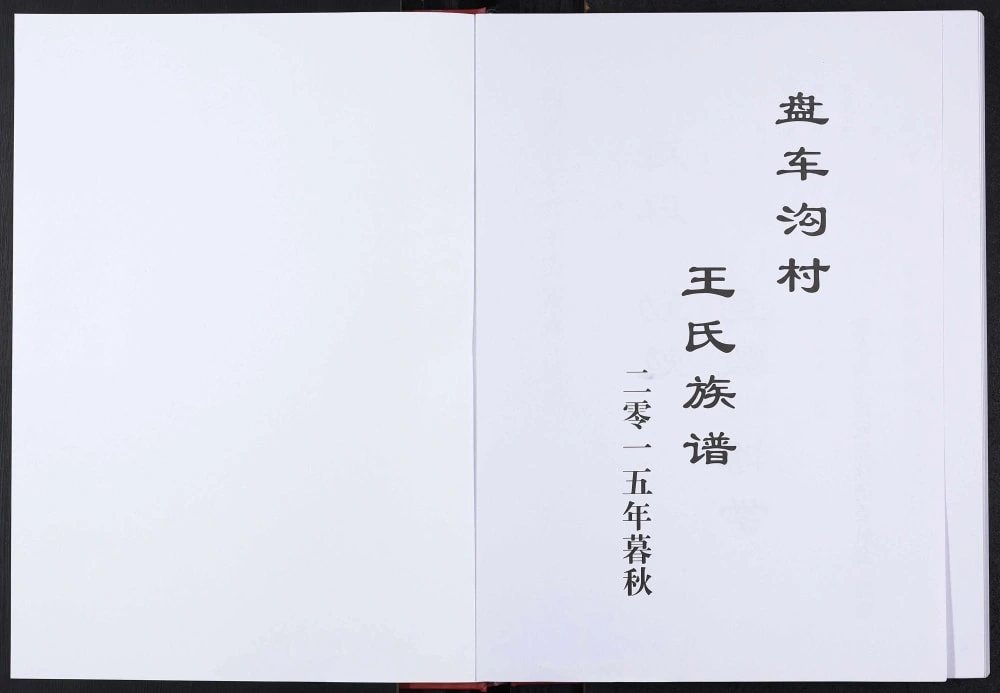 盘车沟村
王氏族谱
二零一五年暮秋